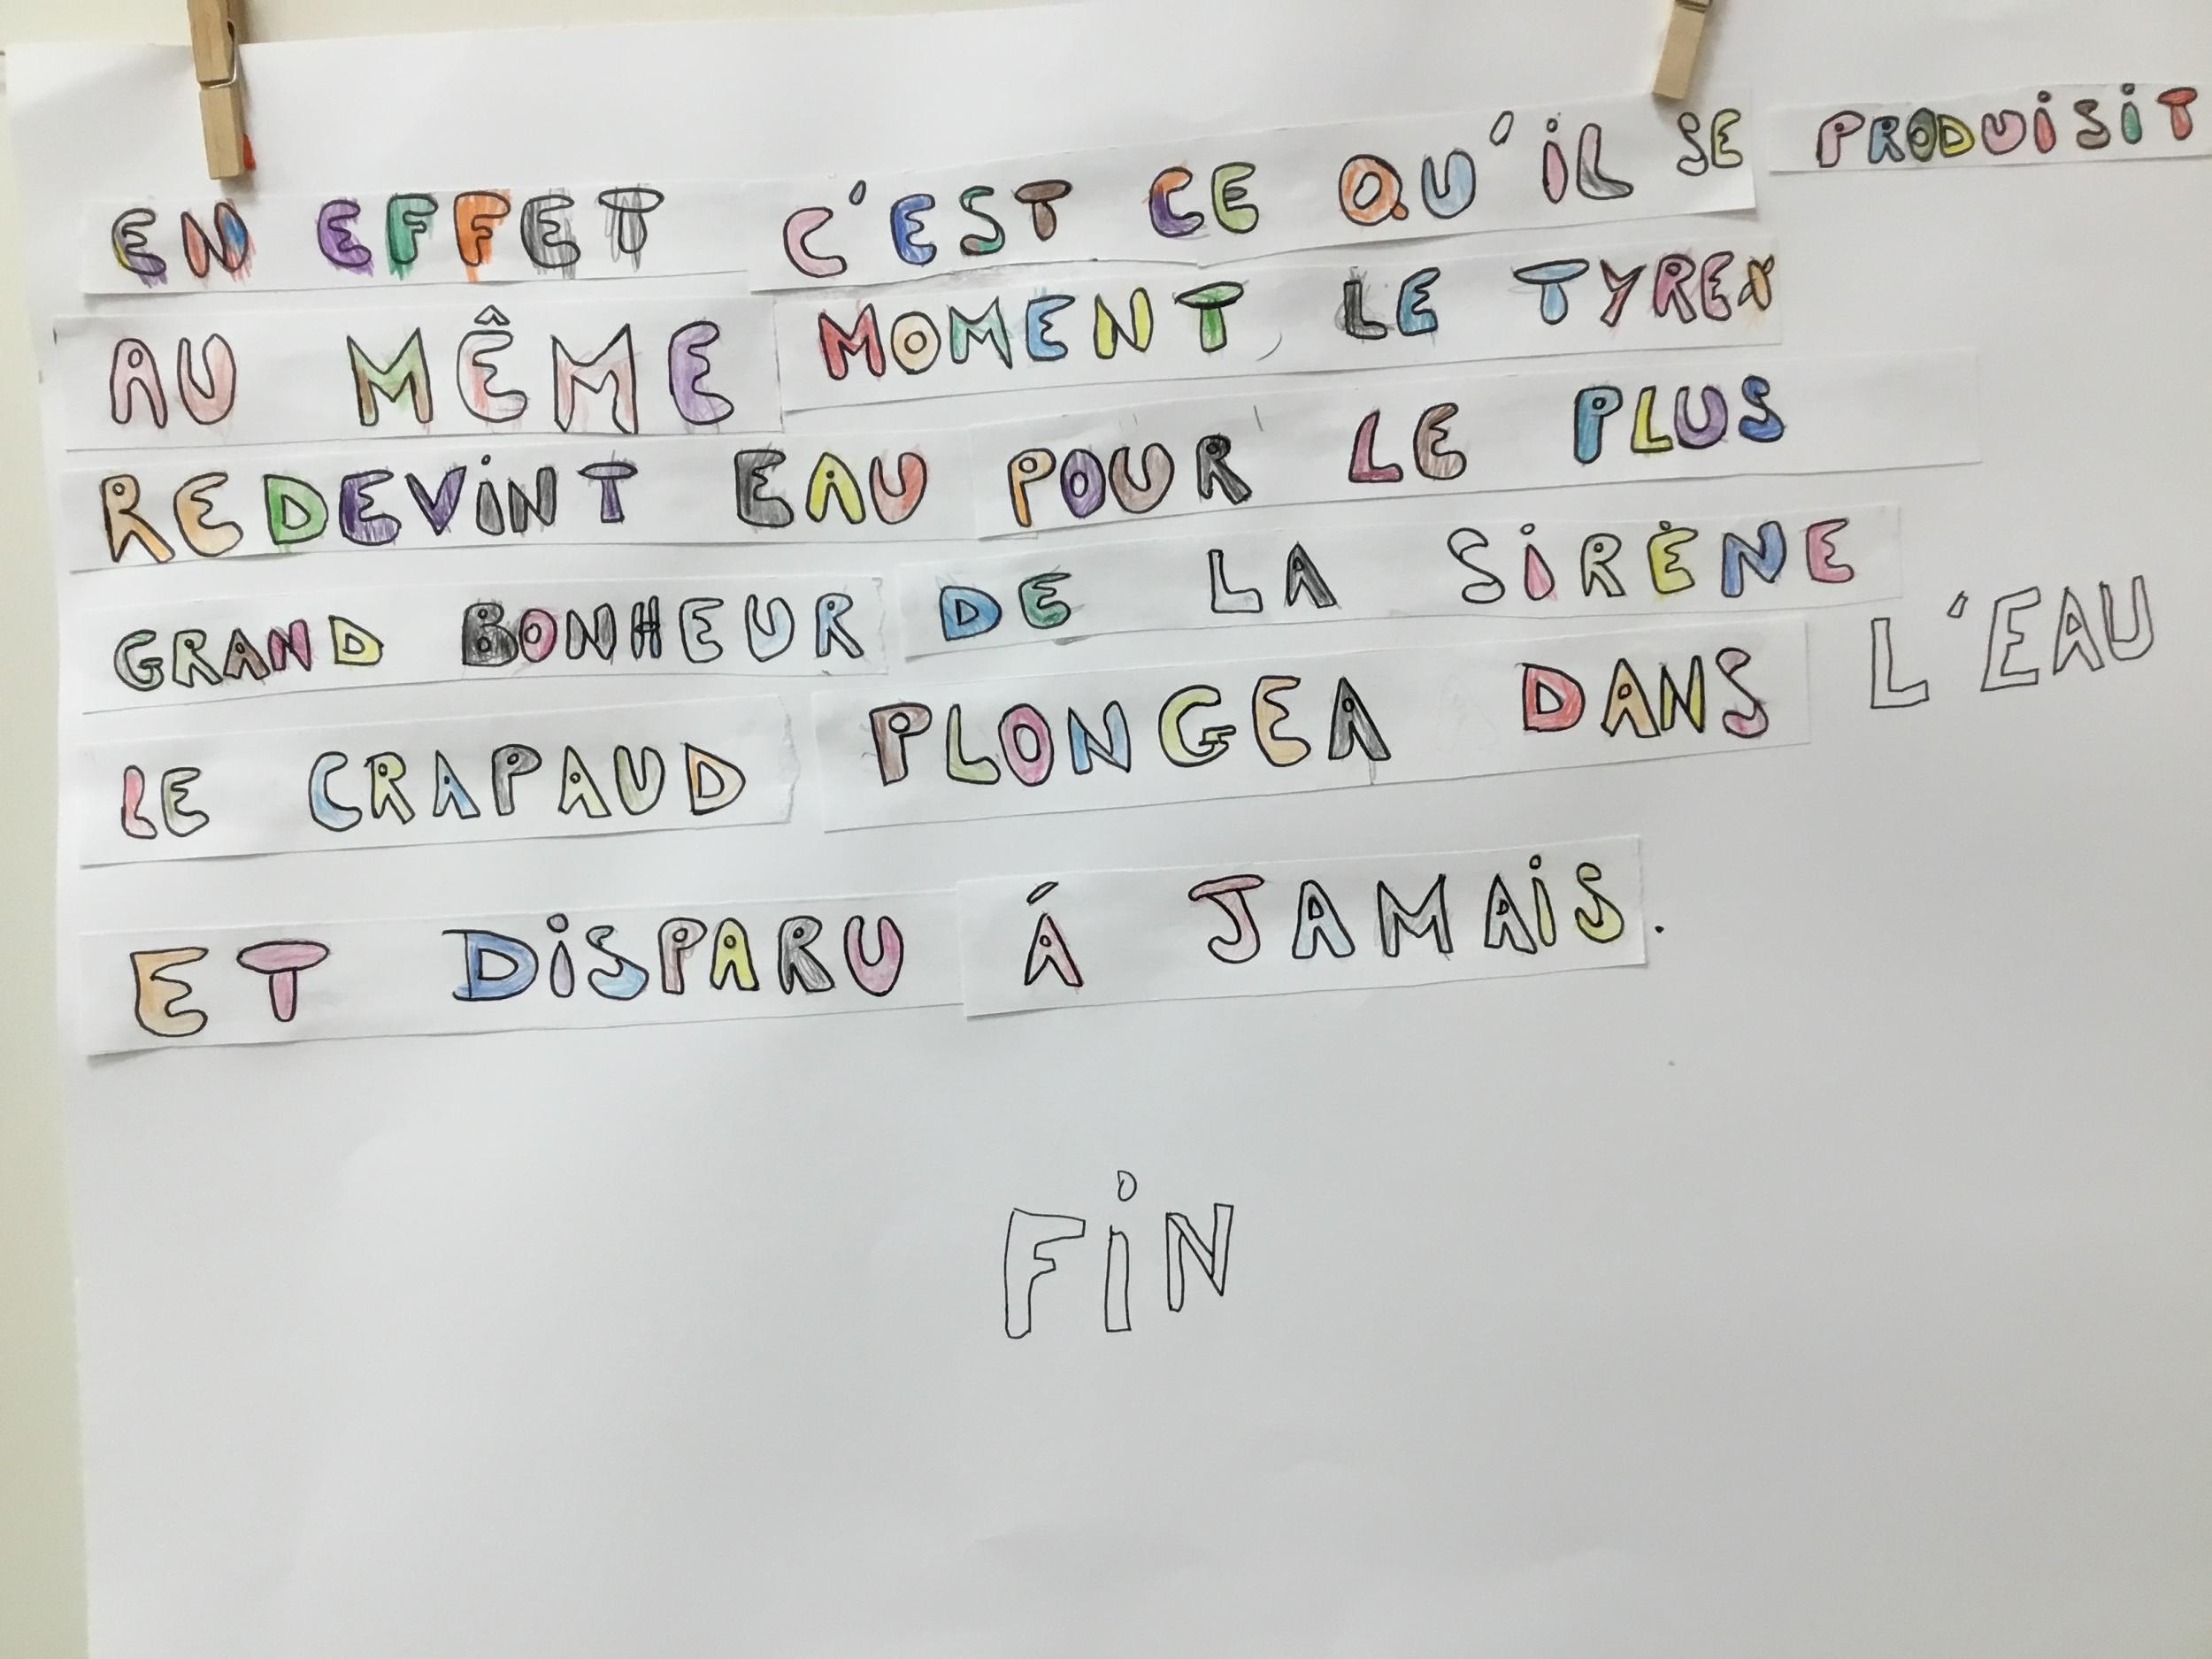 EN EFFET C'EST CE QU'IL SE PRODUISIT
AU MÊME MOMENT, LE TYREX
REDEVINT EAU POUR LE PLUS
GRAND BONHEUR DE LA SIRÈNE
LE CRAPAUD PLONGEA DANS L'EAU
ET DISPARU Á JAMAIS.
FIN